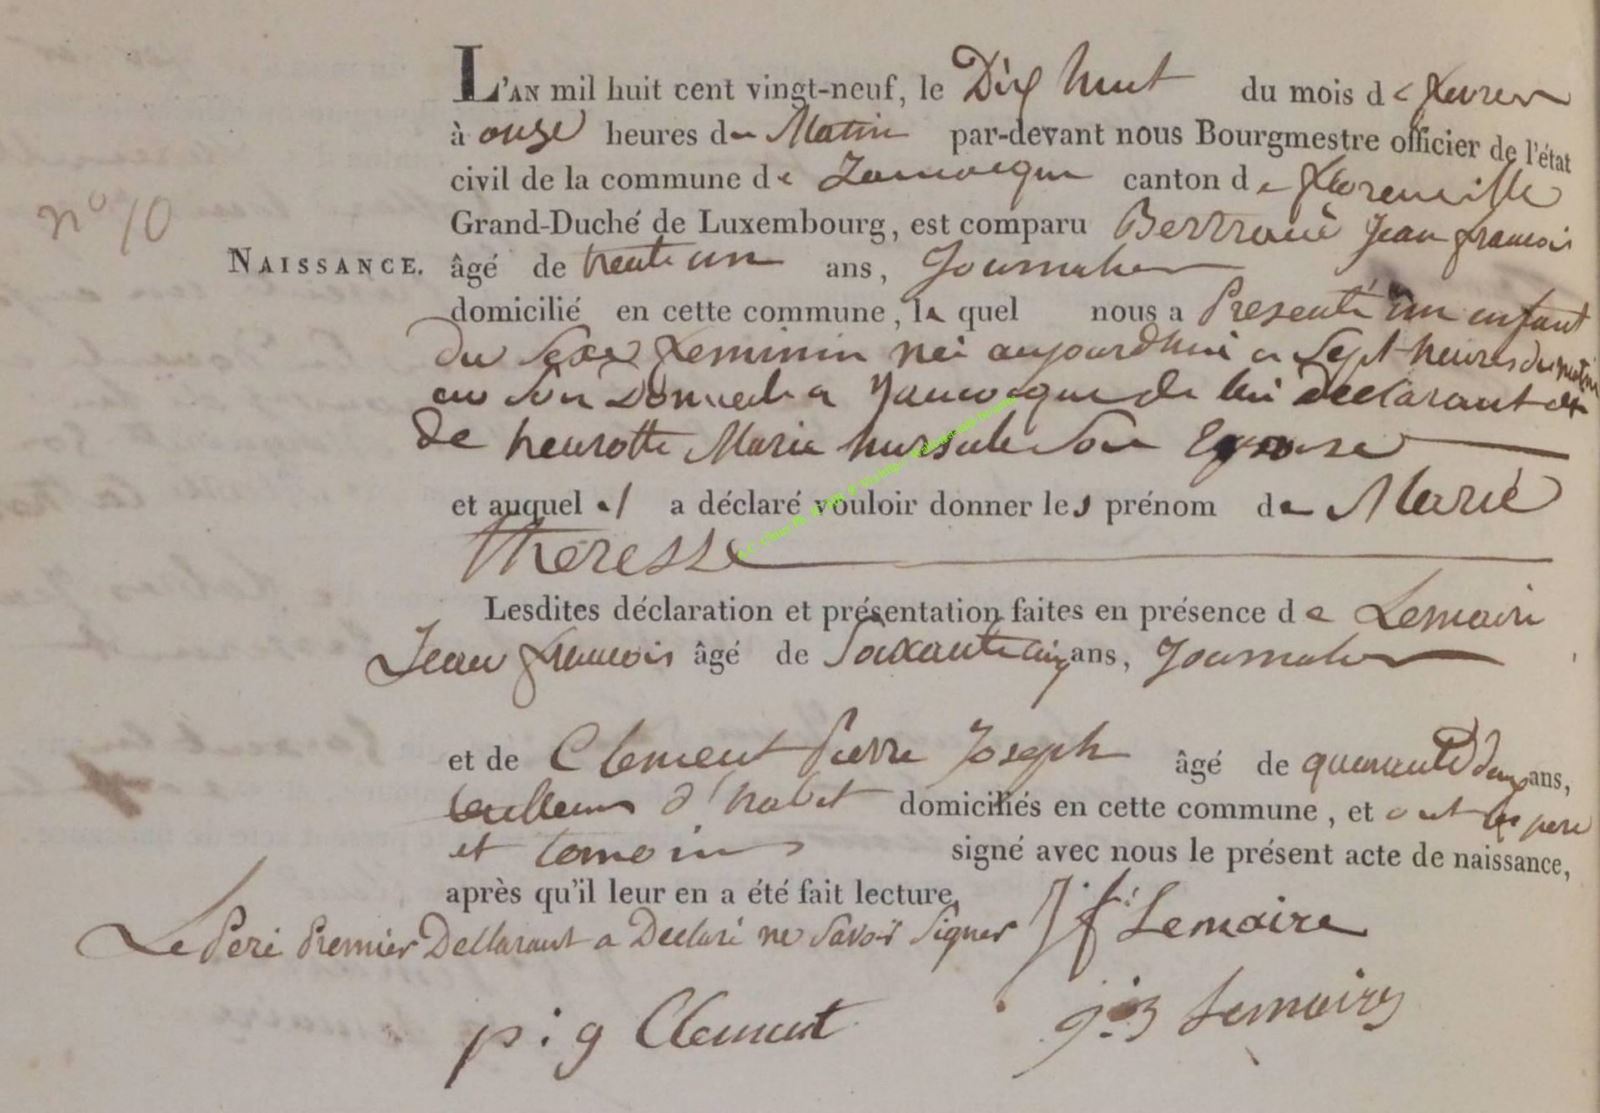 L'AN mil huit cent vingt-neuf, le Dix huit du mois de fevrier
à onze heures du Matin par-devant nous Bourgmestre officier de l'état
civil de la commune de Jamoigne canton de florenville
nº 10
Grand-Duché de Luxembourg, est comparu Bertrand Jean francois
NAISSANCE.
âgé de trente un ans, Journalier
domicilié en cette commune, le quel nous a Presenté un enfant
du sexe feminin né aujourdhui a sept heures du matin
en son Domicile a Jamoigne de lui declarant et
de heurotte Marie hursule son Epouse
et auquel il a déclaré vouloir donner les prénom de Marie
theresse
Lesdites déclaration et présentation faites en présence de Lemaire
Jean francois âgé de soixante cinq ans, Journalier
et de Clement Pierre Joseph âgé de quarante deux ans,
tailleur d'habit domiciliés en cette commune, et ont les pere
et temoins signé avec nous le présent acte de naissance,
après qu'il leur en a été fait lecture.
Le Peré Premier Declarant a Declaré ne savoir signer J f Lemaire
p : g Clement
Lemaire